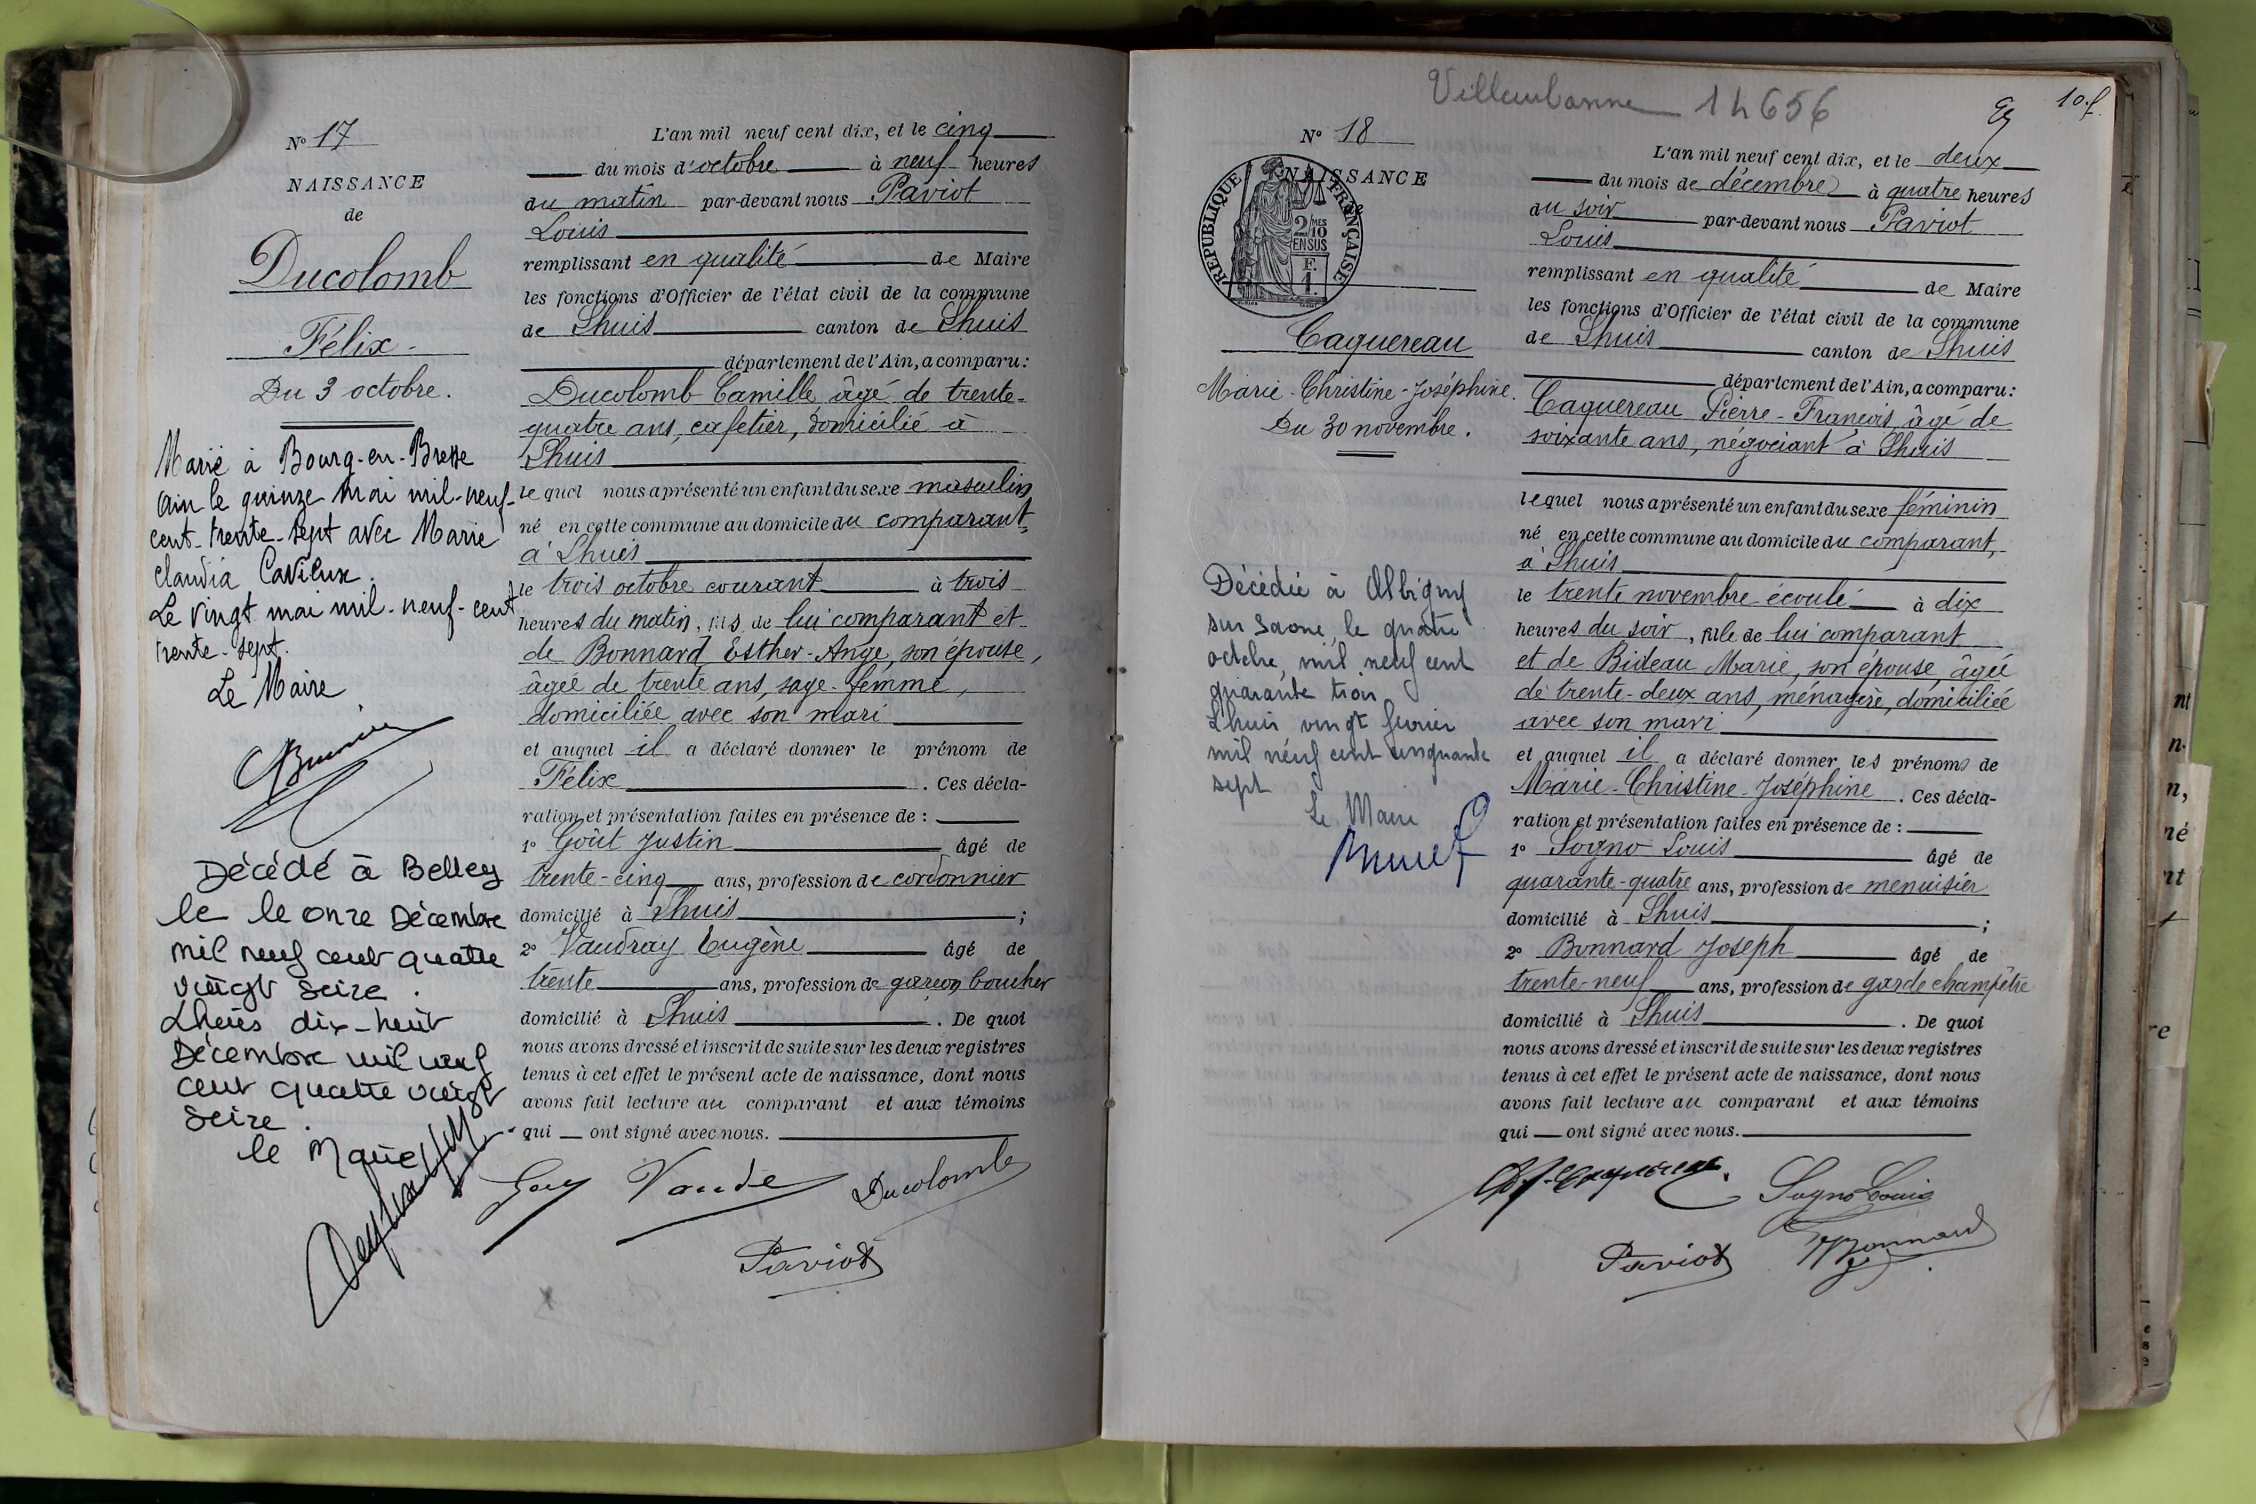 N° 17
NAISSANCE
de
Ducolomb
Félix.
Du 3 octobre.
Marié à Bourg-en-Bresse
Ain le quinze Mai mil-neuf-
cent-trente-sept avec Marie
Claudia
Le Vingt mai mil-neuf-cent
trente-sept.
Le Maire
Décédé à Belley
le le onze Décembre
mil neuf cent quatre
vingt seize.
Lhuis dix-huit
Décembre mil neuf
cent quatre vingt
seize.
le Maire
L'an mil neuf cent dix, et le cinq
du mois d'octobre à neuf heures
du matin par-devant nous Paviot
Louis
remplissant en qualité de Maire
les fonctions d'Officier de l'état civil de la commune
de Lhuis canton de Lhuis
département de l'Ain, a comparu:
Ducolomb Camille âgé de trente-
quatre ans, cafetier, domicilié à
Lhuis
lequel nous a présenté un enfant du sexe masculin
né en cette commune au domicile du comparant,
à Lhuis
le trois octobre courant à trois
heures du matin, fils de lui comparant et
de Bonnard Esther-Ange, son épouse,
âgée de trente ans, sage-femme,
domiciliée avec son mari
et auquel il a déclaré donner le prénom de
Félix. Ces décla-
ration et présentation faites en présence de :
1° Goût Justin âgé de
trente-cinq ans, profession de cordonnier
domicilié à Lhuis ;
2° Vaudray Eugène âgé de
trente ans, profession de garçon boucher
domicilié à Lhuis. De quoi
nous avons dressé et inscrit de suite sur les deux registres
tenus à cet effet le présent acte de naissance, dont nous
avons fait lecture au comparant et aux témoins
qui — ont signé avec nous.
Ducolomb
Paviot
Villeurbanne 14656
10 f.
N° 18
NAISSANCE
de
RÉPUBLIQUE FRANÇAISE
2/10 MES
EN SUS
F.
1.
Caquereau
Marie-Christine-Joséphine.
Du 30 novembre.
Décédée à Albigny
sur Saone, le quatre
octobre, mil neuf cent
quarante trois
Lhuis vingt fevrier
mil neuf cent cinquante
sept
Le Maire
L'an mil neuf cent dix, et le deux
du mois de décembre à quatre heures
du soir par-devant nous Paviot
Louis
remplissant en qualité de Maire
les fonctions d'Officier de l'état civil de la commune
de Lhuis canton de Lhuis
département de l'Ain, a comparu:
Caquereau Pierre-François, âgé de
soixante ans, négociant à Lhuis
lequel nous a présenté un enfant du sexe féminin
né en cette commune au domicile du comparant,
à Lhuis
le trente novembre écoulé à dix
heures du soir, fille de lui comparant
et de Bideau Marie, son épouse, âgée
de trente-deux ans, ménagère, domiciliée
avec son mari
et auquel il a déclaré donner les prénoms de
Marie-Christine-Joséphine. Ces décla-
ration et présentation faites en présence de :
1° Sogno Louis âgé de
quarante-quatre ans, profession de menuisier
domicilié à Lhuis ;
2° Bonnard Joseph âgé de
trente-neuf ans, profession de garde champêtre
domicilié à Lhuis. De quoi
nous avons dressé et inscrit de suite sur les deux registres
tenus à cet effet le présent acte de naissance, dont nous
avons fait lecture au comparant et aux témoins
qui — ont signé avec nous.
Sogno Louis
Paviot Bonnard